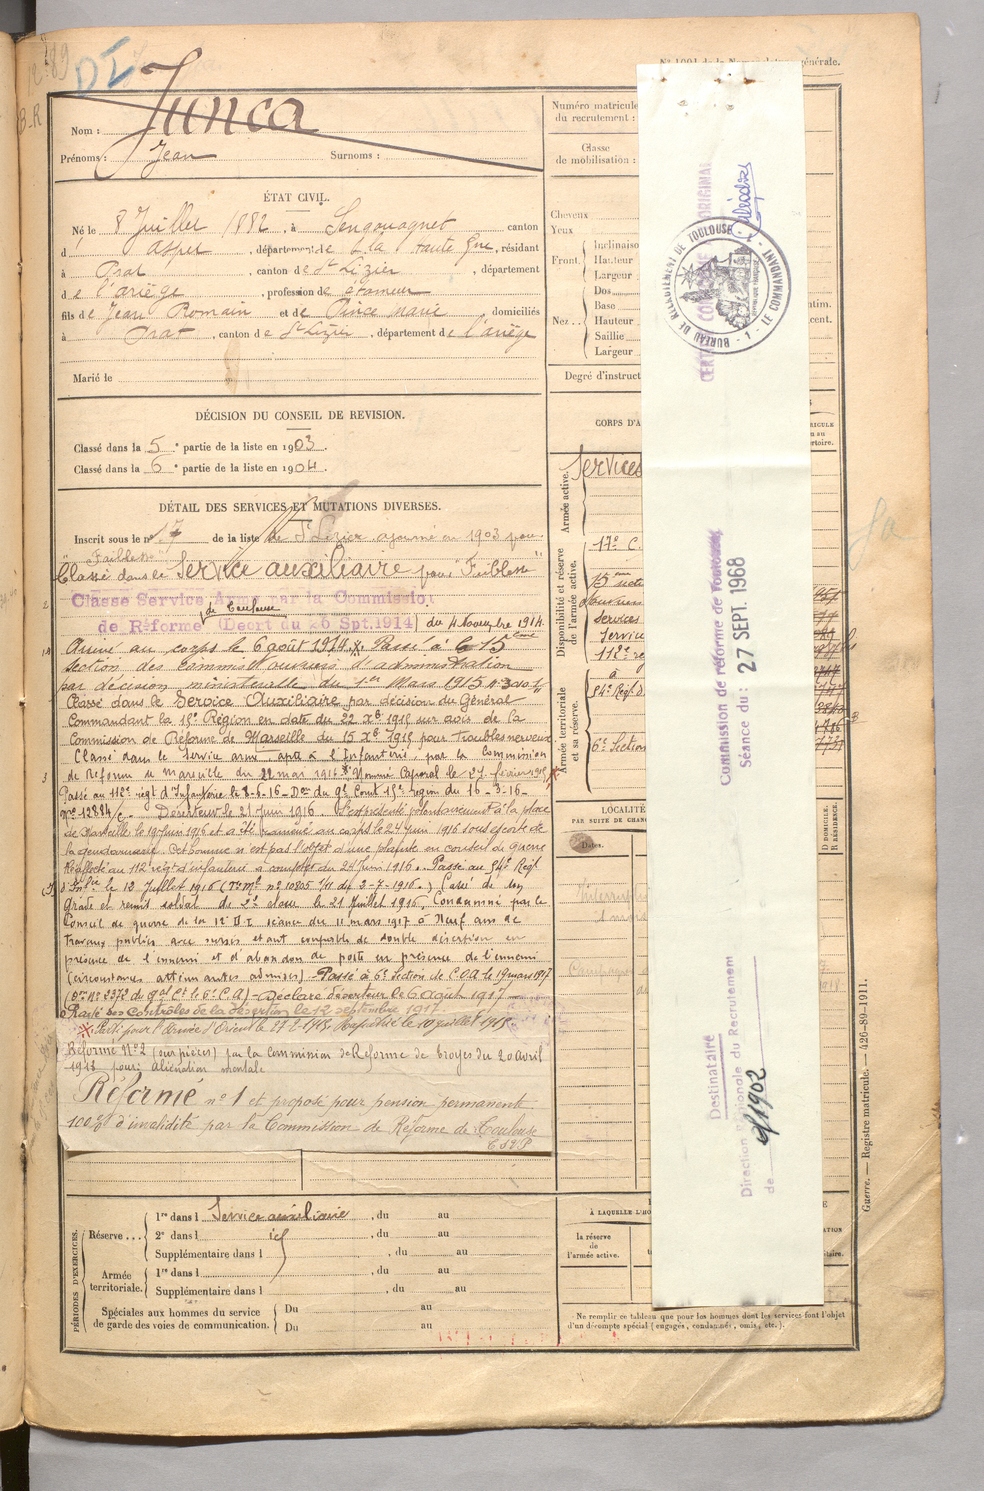 DI
Junca
Nom :
Prénoms : Jean Surnoms :
ÉTAT CIVIL.
Né le 8 Juillet 1882, à Sengouagnet canton
d Aspet, département de la haute Gne, résidant
à Prat, canton de St Lizier, département
de l'ariège, profession de étameur
fils de Jean Romain et de Pince Marie domiciliés
à Prat, canton de St Lizier, département de l'ariège
Marié le
DÉCISION DU CONSEIL DE REVISION.
Classé dans la 5e partie de la liste en 1903.
Classé dans la 6e partie de la liste en 1904.
DÉTAIL DES SERVICES ET MUTATIONS DIVERSES.
Inscrit sous le no 17 de la liste de St Lizier ajourné en 1903 pour
"Faiblesse"
Classé dans le Service auxiliaire pour "Faiblesse"
Classé Service Armé par la Commission
de Toulouse
de Réforme (Décret du 26 Spt. 1914) du 4 Novembre 1914
Arrivé au corps le 6 août 1914. Passé à la 15ème
Section des Commis et ouvriers d'administration
par décision ministérielle du 1er Mars 1915
Classé dans le Service Auxiliaire par décision du Général
Commandant la 15e Région en date du 22 Xbre 1915 sur avis de la
Commission de Réforme de Marseille du 15 Xbre 1915 pour troubles nerveux
Classé dans le service armé apte à l'Infanterie, par la Commission
de Réforme de Marseille du 22 mar 1916. Nommé Caporal le 27 février 1915
Passé au 112e régt d'Infanterie le 8-6-16 Don du Gl Comt 15e région du 16-3-16
No 12884/C. Déserteur le 21 Juin 1916. S'est présenté volontairement à la place
de Marseille le 19 Juin 1916 et a été ramené au corps le 24 Juin 1916 sous escorte de
la gendarmerie. Cet homme n'est pas l'objet d'une plainte en conseil de guerre
Réaffecté au 112e régt d'infanterie à compter du 24 Juin 1916. Passé au 54e Régt
d'Infie le 12 Juillet 1916 (No 10805 du 2-7-1916.) Cassé de son
Grade et remis soldat de 2e classe le 21 Juillet 1916. Condamné par le
Conseil de guerre de la 12e D.I. séance du 11 mars 1917 à Neuf ans de
travaux publics avec sursis étant coupable de double désertion en
présence de l'ennemi et d'abandon de poste en présence de l'ennemi
(circonstances atténuantes admises) Passé à 6e Section de C.O.A. le 19 mars 1917
(Don No 2372 du Gal Ct le 6e C.A) Déclaré déserteur le 6 août 1917
Rayé des Contrôles de la désertion le 12 septembre 1917.
Parti pour l'Armée d'Orient le 27-2-1915. Rapatrié le 10 juillet 1915
Réformé No 2 (sur pièces) par la Commission de Réforme de Troyes du 20 Avril
1918 pour: Aliénation mentale
Réformé no 1 et proposé pour pension permanente
100% d'invalidité par la Commission de Réforme de Toulouse
PÉRIODES D'EXERCICES.
Réserve ...
1re dans l Service auxiliaire, du au
2e dans l id, du au
Supplémentaire dans l , du au
Armée territoriale.
1re dans l , du au
Supplémentaire dans l , du au
Spéciales aux hommes du service de garde des voies de communication.
Du au
Du au
Numéro matricule
du recrutement :
Classe
de mobilisation :
Cheveux
Yeux
Front.
Inclinaiso
Hauteur
Largeur
Nez ..
Dos
Base
Hauteur
Saillie
Largeur
Degré d'instruct
CORPS D'A
Armée active.
Services
Disponibilité et réserve
de l'armée active.
17e C.
15eme
Services
Servic
112e re
à
54e Régt d
Armée territoriale
et sa réserve.
6e Section
LOCALITÉ
PAR SUITE DE CHAN
Dates.
D DOMICILE,
R RÉSIDENCE.
À LAQUELLE L'HO
la réserve
de
l'armée active.
Ne remplir ce tableau que pour les hommes dont les services font l'objet
d'un décompte spécial (engagés, condamnés, omis, etc.).
CERTIFIÉ CONFORME À L'ORIGINAL
BUREAU DE RECRUTEMENT DE TOULOUSE - 1 - LE COMMANDANT - 1 -
RÉPUBLIQUE FRANÇAISE
Commission de réforme de Toulouse
Séance du : 27 SEPT. 1968
Destinataire
Direction régionale du Recrutement
de
cl 1902
Guerre. — Registre matricule. — 426-89-1911.